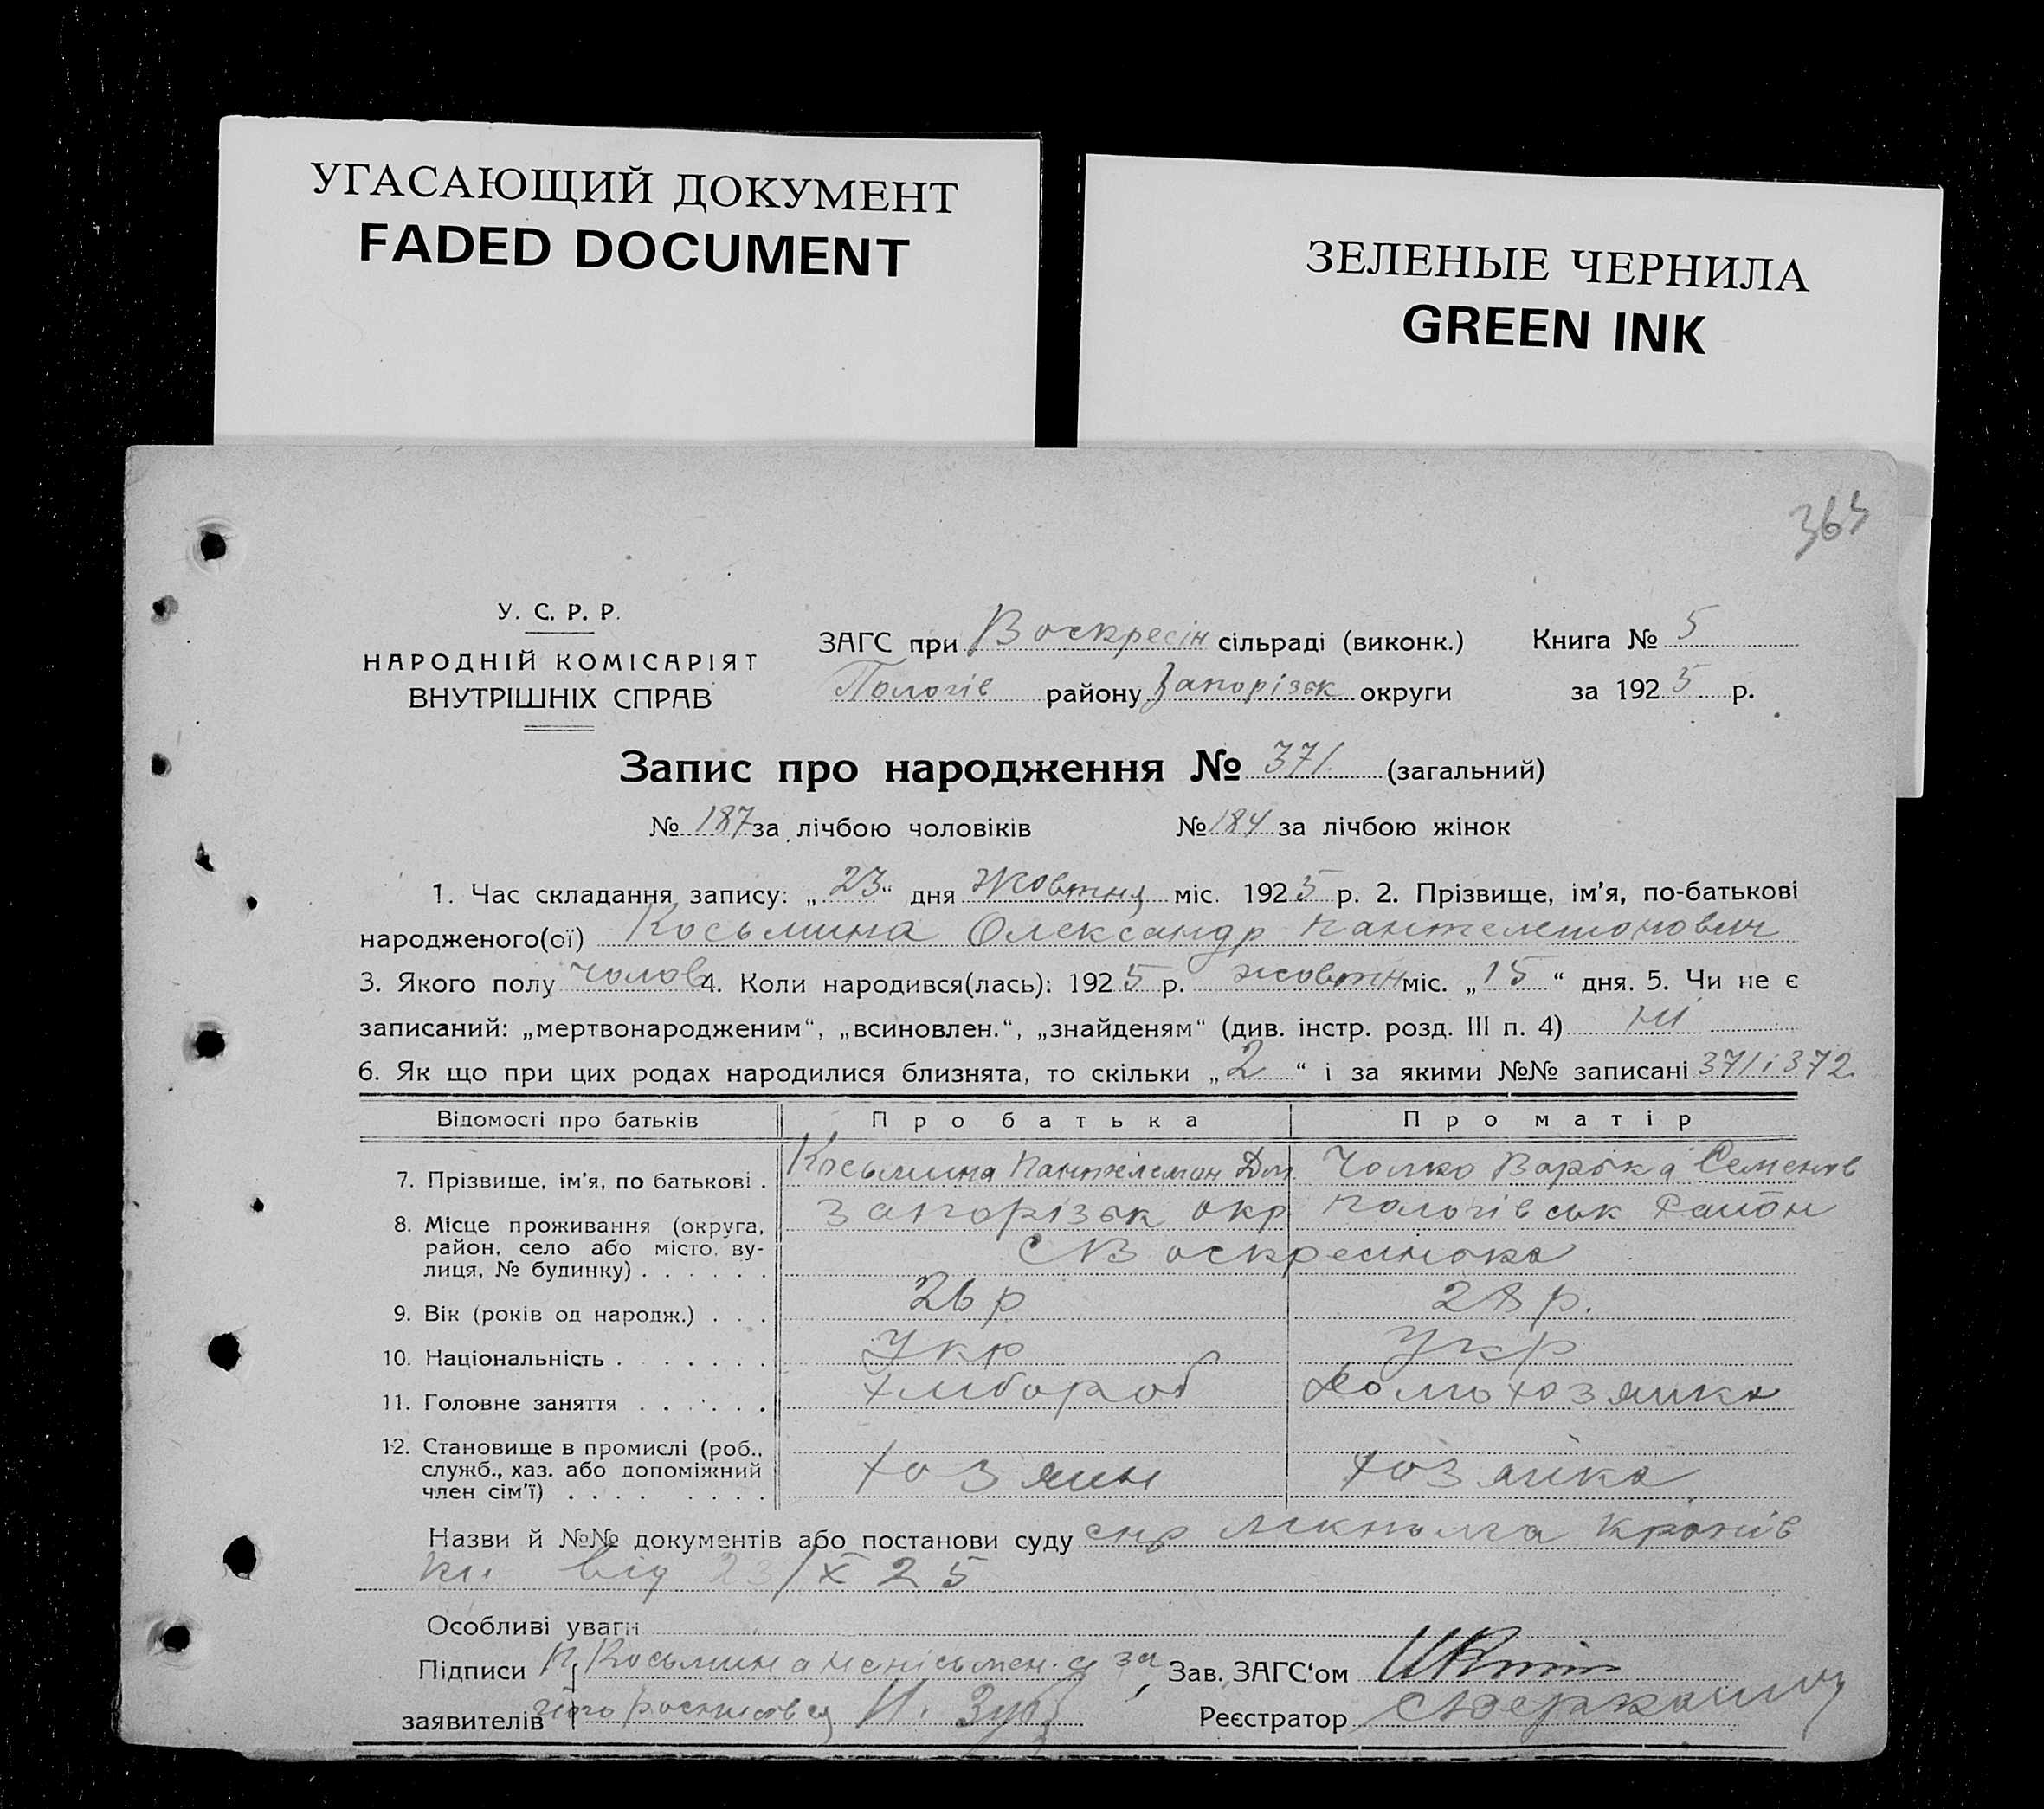 УГАСАЮЩИЙ ДОКУМЕНТ
FADED DOCUMENT
ЗЕЛЕНЫЕ ЧЕРНИЛА
GREEN INK
У. С. Р. Р.
НАРОДНІЙ КОМІСАРІЯТ
ВНУТРІШНІХ СПРАВ
ЗАГС при Воскресін сільраді (виконк.) Книга № 5
Пологів району Запорізьк округи за 1925 р.
Запис про народження № 371 (загальний)
№ 187 за лічбою чоловіків № 184 за лічбою жінок
1. Час складання запису: „23“ дня Жовтня міс. 1925 р. 2. Прізвище, ім'я, по-батькові
народженого(ої) Косьмина Олександр Пантелемонович
3. Якого полу чолов 4. Коли народився(лась): 1925 р. жовтн міс. „15“ дня. 5. Чи не є
записаний: „мертвонародженим“, „всиновлен.“, „знайденям“ (див. інстр. розд. III п. 4) ні
6. Як що при цих родах народилися близнята, то скільки „2“ і за якими №№ записані 371 і 372
Відомості про батьків Про батька Про матір
7. Прізвище, ім'я, по батькові . Косьмина Пантелемон Чолко Варька Семенов
8. Місце проживання (округа, Запорізьк окр Пологівськ Район
район, село або місто, ву- с Воскресинська
лиця, № будинку) . . . . . .
9. Вік (років од народж.) . . . 26 р 28 р.
10. Національність . . . . . . . Укр Укр
11. Головне заняття . . . . . . Хлибороб Домохозяйка
12. Становище в промислі (роб.,
служб., хаз. або допоміжний Хозяин хозяйка
член сім'ї) . . . . . . . .
Назви й №№ документів або постанови суду
від 23/X 25
Особливі уваги
Підписи П. Косьмина неписьмен. а за Зав. ЗАГС‘ом
заявителів його росписався И. Зуб Реєстратор